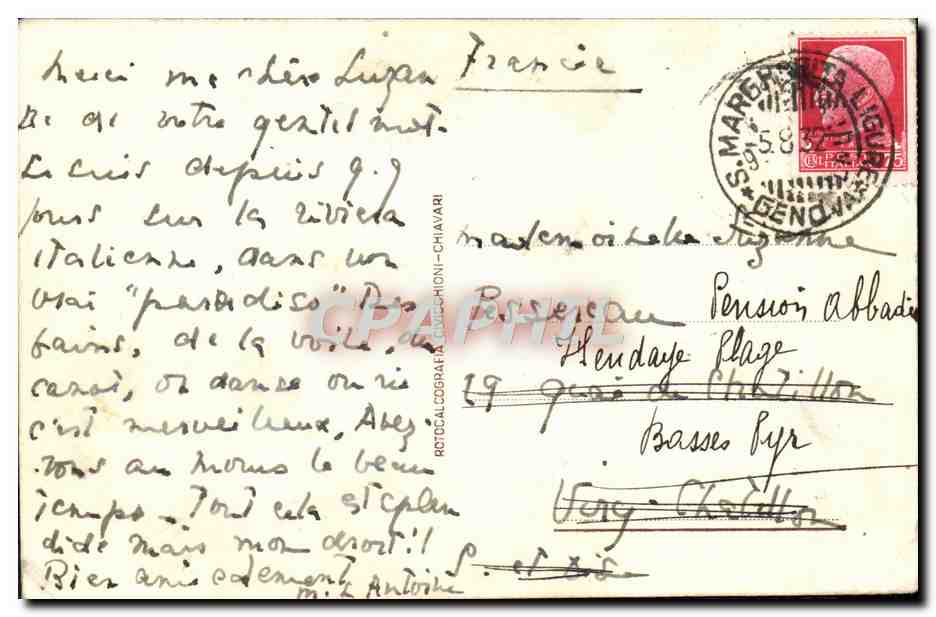 Merci ma chère Suzan
ne de votre gentil mot.
Je suis depuis q.q
jours sur la riviera
italienne, dans un
vrai "paradiso" Des
bains, de la voile, du
canot, on danse on rit
c'est merveilleux, Avez-
vous au moins le beau
temps. Tout cela est splen
dide mais mon
Bien amicalement
m. L Antoine
ROTOCALCOGRAFIA CIVICCHIONI-CHIAVARI
France
S. MARGHERITA LIGURE
GENOVA
5.8.32
75
Mademoiselle Suzanne
Pessereau Pension Abbadie
Hendaye Plage
29 quai de Chatillon
Basses Pyr
Viry-Chatillon
S. et Oise
CPAPHIL